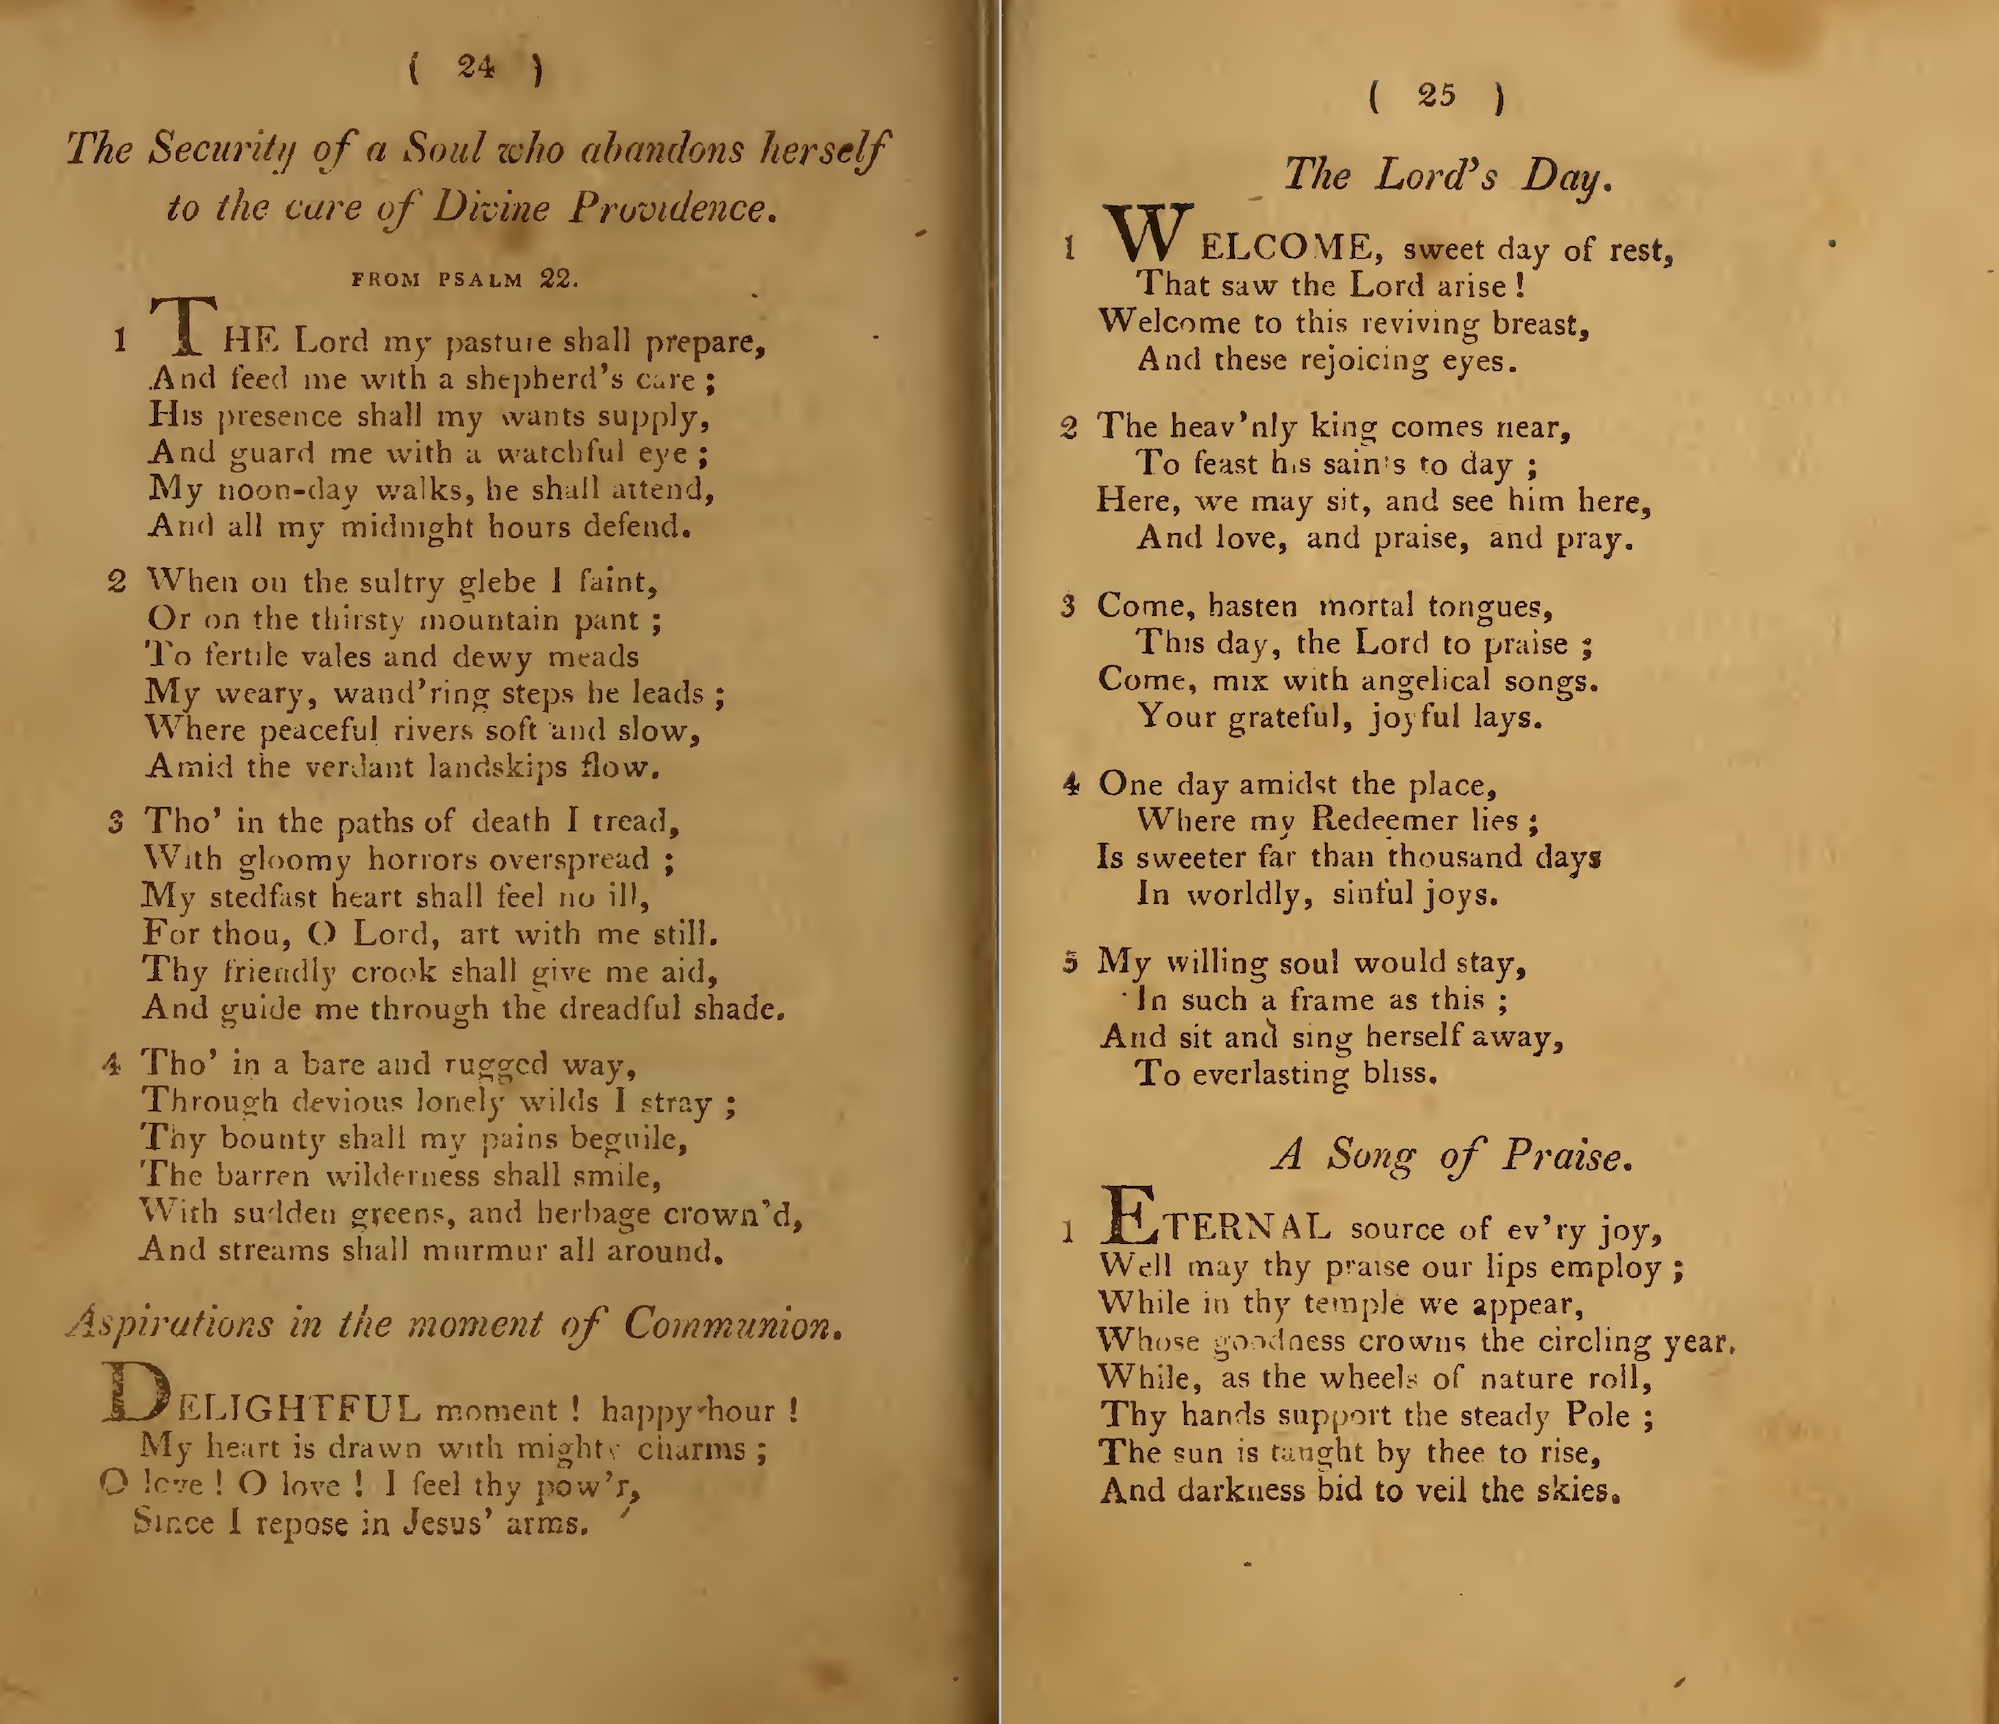 ( 24 )
The Security of a Soul who abandons herself
to the care of Divine Providence.
FROM PSALM 22.
1 THE Lord my pasture shall prepare,
And feed me with a shepherd's care ;
His presence shall my wants supply,
And guard me with a watchful eye ;
My noon-day walks, he shall attend,
And all my midnight hours defend.
2 When on the sultry glebe I faint,
Or on the thirsty mountain pant ;
To fertile vales and dewy meads
My weary, wand'ring steps he leads ;
Where peaceful rivers soft and slow,
Amid the verdant landskips flow.
3 Tho' in the paths of death I tread,
With gloomy horrors overspread ;
My stedfast heart shall feel no ill,
For thou, O Lord, art with me still.
Thy friendly crook shall give me aid,
And guide me through the dreadful shade.
4 Tho' in a bare and rugged way,
Through devious lonely wilds I stray ;
Thy bounty shall my pains beguile,
The barren wilderness shall smile,
With sudden greens, and herbage crown'd,
And streams shall murmur all around.
Aspirations in the moment of Communion.
DELIGHTFUL moment ! happy hour !
My heart is drawn with mighty charms ;
O love ! O love ! I feel thy pow'r,
Since I repose in Jesus' arms.
( 25 )
The Lord's Day.
1 WELCOME, sweet day of rest,
That saw the Lord arise !
Welcome to this reviving breast,
And these rejoicing eyes.
2 The heav'nly king comes near,
To feast his saints to day ;
Here, we may sit, and see him here,
And love, and praise, and pray.
3 Come, hasten mortal tongues,
This day, the Lord to praise ;
Come, mix with angelical songs.
Your grateful, joyful lays.
4 One day amidst the place,
Where my Redeemer lies ;
Is sweeter far than thousand days
In worldly, sinful joys.
5 My willing soul would stay,
In such a frame as this ;
And sit and sing herself away,
To everlasting bliss.
A Song of Praise.
1 ETERNAL source of ev'ry joy,
Well may thy praise our lips employ ;
While in thy temple we appear,
Whose goodness crowns the circling year.
While, as the wheels of nature roll,
Thy hands support the steady Pole ;
The sun is taught by thee to rise,
And darkness bid to veil the skies.